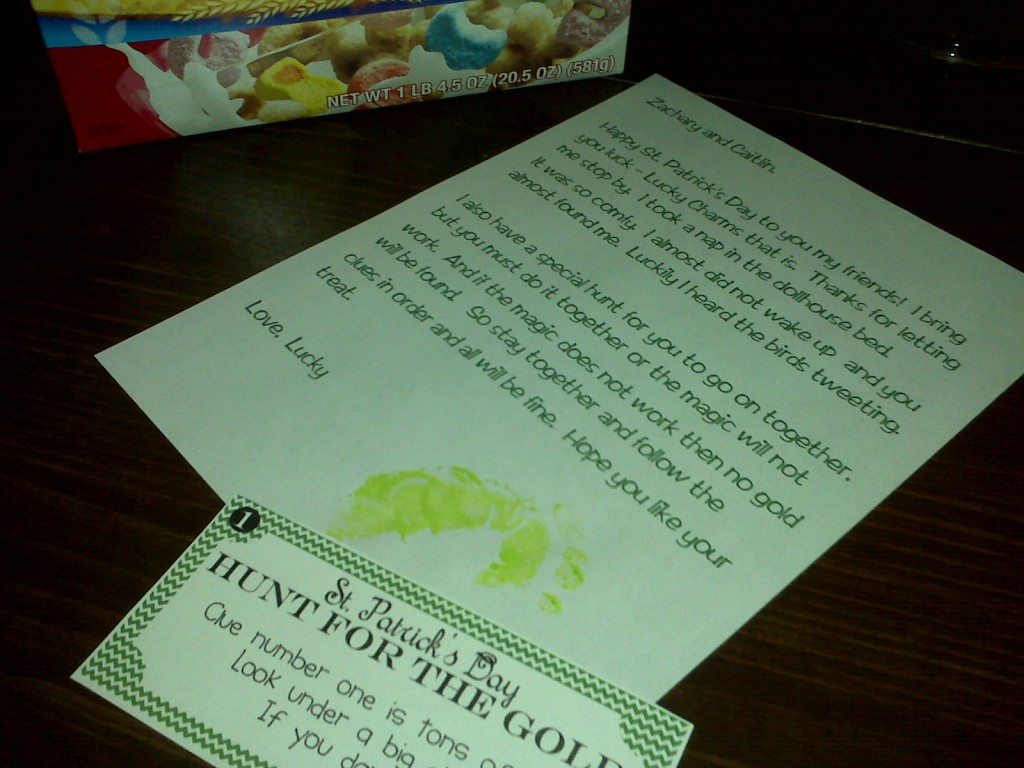 NET WT 1 LB 4.5 OZ (20.5 OZ) (581g)
Zachary and Caitlin,
Happy St. Patrick's Day to you my friends! I bring
you luck - Lucky Charms that is. Thanks for letting
me stop by. I took a nap in the dollhouse bed.
It was so comfy, I almost did not wake up and you
almost found me. Luckily I heard the birds tweeting.
I also have a special hunt for you to go on together.
but you must do it together or the magic will not
work. And if the magic does not work then no gold
will be found. So stay together and follow the
clues in order and all will be fine. Hope you like your
treat.
Love, Lucky
1
St. Patrick's Day
HUNT FOR THE GOLD
Clue number one is tons
Look under a big
If you